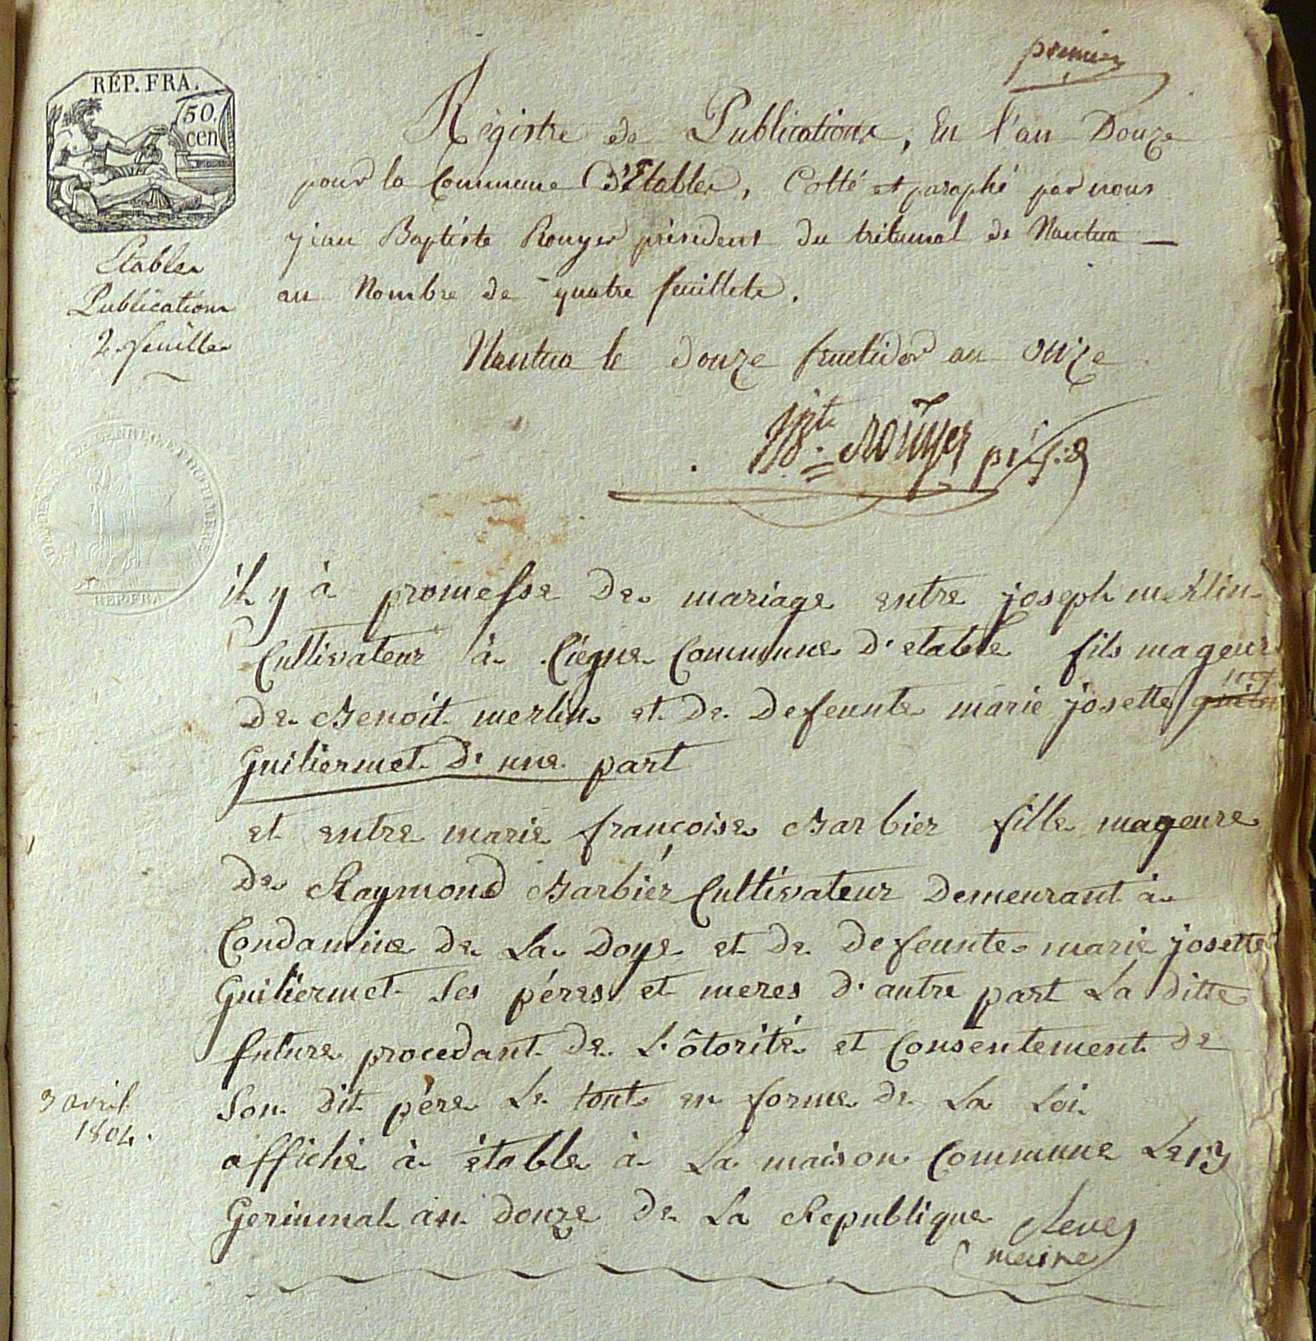 premier
REP. FRA.
50.
cen
Régistre de Publications, En l'an Douze
pour la Commune D'Etables, Cotté et paraphé par nous
jean Baptiste Rouyer président du tribunal de Nantua
au Nombre de quatre feuillets.
Etables
Publications
2 feuilles
Nantua le douze fructidor an onze
JBte. Rouyer présid
REP. FRA
il y à promesse de mariage entre joseph merlin
Cultivateur à Ciegne Commune d'etable fils mageur
de Benoit merlin et de defeunte marie josette
Guiliermet d'une part
et entre marie françoise Barbier fille mageure
de Raymond Barbier Cultivateur demeurant à
Condamine de La Doye et de defeunte marie josette
Guiliermet Ses péres et meres d'autre part La ditte
future procedant de L'ôtorité et Consentement de
Son dit pére Le tout en forme de La Loi
3 avril
1804.
affiché à étable à La maison Commune Le 13
Germinal an douze de La Republique
maire